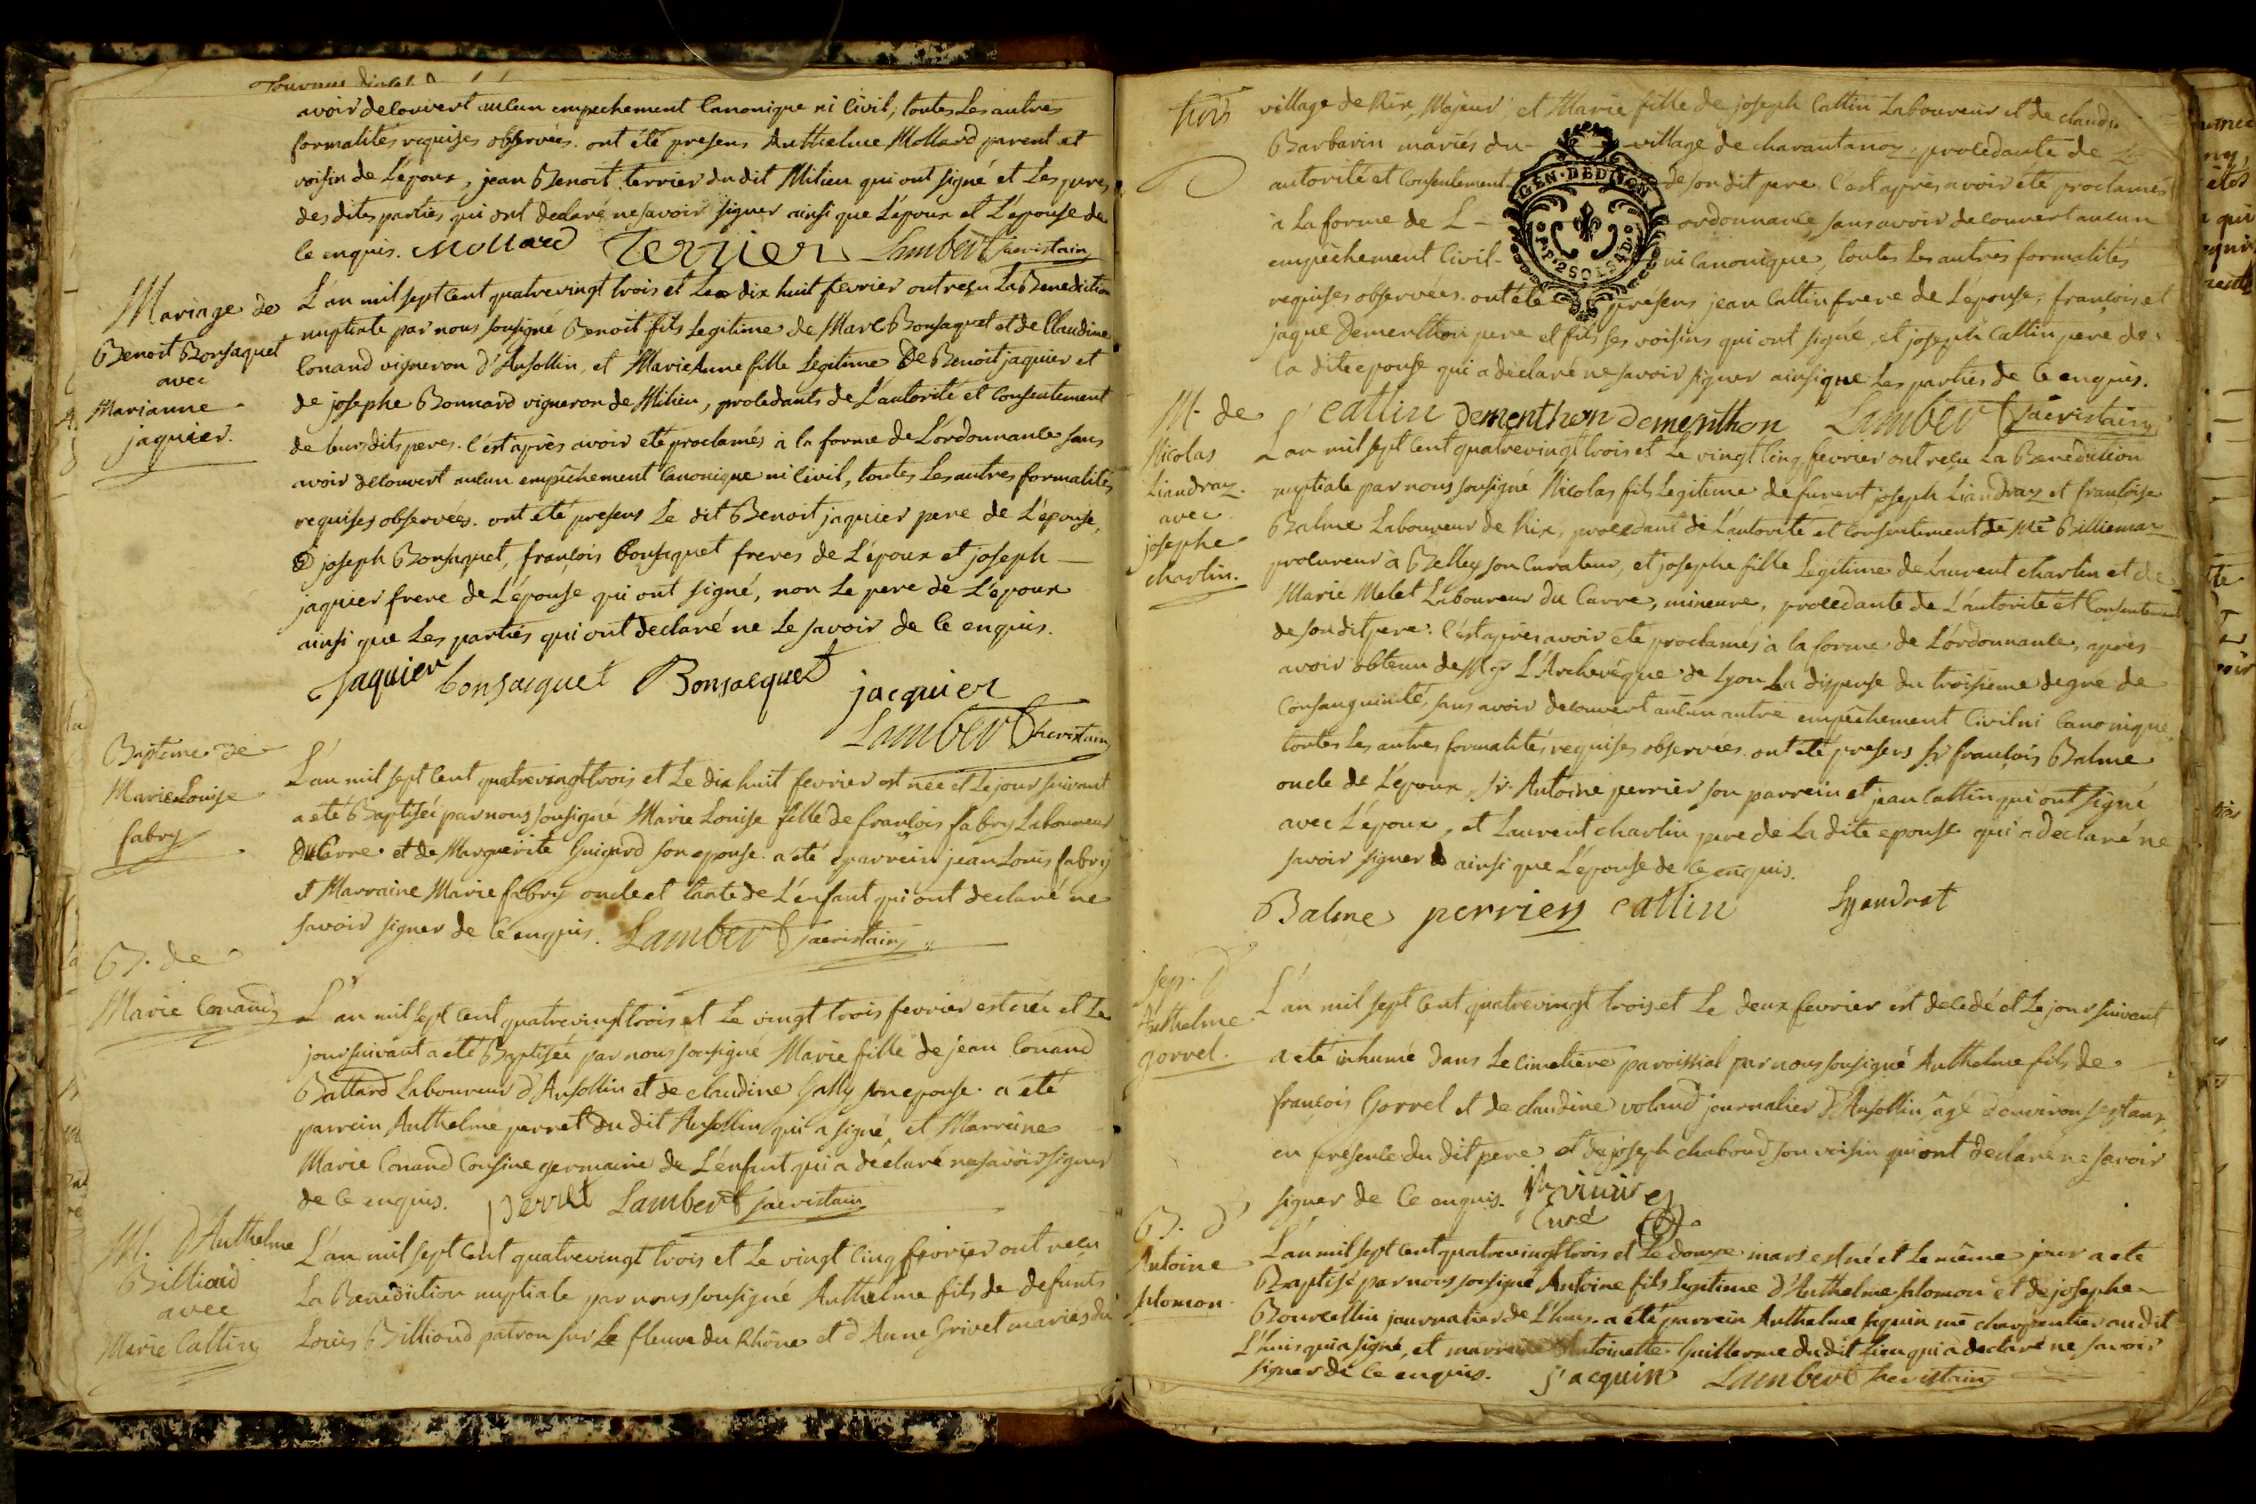 avoir decouvert aucun empechement Canonique ni Civil, toutes Les autres
formalités requises observées. ont été presens Anthelme Mollard parent et
voisin de L'époux, jean Benoit terrier du dit Milieu qui ont signé et Les peres
des dites parties qui ont declaré ne savoir signer ainsi que L'époux et L'épouse de
ce enquis. Mollard Terrier Lambert Sacristain
Mariage de
Benoit Bonsaquet
avec
Marianne
jaquier.
L'an mil sept cent quatrevingt trois et Le dix huit fevrier ont reçu La Benediction
nuptiale par nous sousigné Benoit fils Legitime de Marc Bonsaquet et de Claudine
Conand vigneron d'Ansollin, et Marie Anne fille Legitime De Benoit jaquier et
de josephe Bonnard vigneron de Milieu, procedants de L'autorité et Consentement
de leurs dits peres. C'est après avoir été proclamés à la forme de L'ordonnance sans
avoir decouvert aucun empêchement Canonique ni Civil, toutes Les autres formalités
requises observées. ont été presens Le dit Benoit jaquier pere de L'épouse,
joseph Bonsaquet, françois Bonsaquet freres de L'époux et joseph
jaquier frere de L'épouse qui ont signé, non Le pere de L'epoux
ainsi que Les parties qui ont declaré ne Le savoir de Ce enquis.
jaquier bonsacquet Bonsacquet jacquier
Lambert Sacristain
Baptême de
Marie Louise
fabry
L'an mil sept Cent quatrevingt trois et Le dix huit fevrier est née et Le jour suivant
a été Baptisée par nous sousigné Marie Louise fille de françois fabry Laboureur
Du Carre et de Marguerite Guigard son epouse. a été parrein jean Louis fabry
et Marraine Marie fabry oncle et tante de L'enfant qui ont declaré ne
savoir signer de Ce enquis. Lambert Sacristain
B. de
Marie Conand
L'an mil sept Cent quatrevingt trois et Le vingt trois fevrier est née et Le
jour suivant a été Baptisée par nous sousigné Marie fille de jean Conand
Battard Laboureur d'Ansollin et de claudine Gally son epouse. a été
parrein Anthelme perret du dit Ansollin qui a signé, et Marreine
Marie Conand Cousine germaine de L'enfant qui a declaré ne savoir signer
de Ce enquis. perret Lambert Sacristain
M. d'Anthelme
Billioud
avec
Marie Cattin
L'an mil sept Cent quatrevingt trois et Le vingt Cinq fevrier ont reçu
La Benediction nuptiale par nous sousigné Anthelme fils de defunts
Louis Billioud patron sur Le fleuve du Rhône et d'Anne Grivet mariés du
trois
village de Rix, Majeur; et Marie fille de joseph Cattin Laboureur et de claudi
Barbarin mariés du village de charantanoz, procedante de L
autorité et Consentement de son dit pere. C'est après avoir été proclamés
à La forme de L ordonnance, sans avoir decouvert aucun
empêchement Civil ni Canonique, toutes Les autres formalités
GEN. DE DIJON
P.P. 2 SOLS 4 D.
requises observées. ont été présens jean Cattin frere de L'épouse, françois et
jaque Dementhon pere et fils ses voisins qui ont signé, et joseph Cattin pere de
la dite epouse qui a déclaré ne savoir signer ainsi que Les parties de Ce enquis.
Cattin dementhon Dementhon Lambert Sacristain
M. de
Nicolas
Liandraz
avec
josephe
charlin.
L'an mil sept Cent quatrevingt trois et Le vingt Cinq fevrier ont reçu La Benediction
nuptiale par nous sousigné Nicolas fils Legitime de joseph Liandraz et françoise
Balme Laboureur de Rix, procedant de L'autorité et Consentement de Me Billiemaz
procureur à Belley son Curateur, et josephe fille Légitime de Laurent charlin et de
Marie Melet Laboureur du Carre, mineure, procedante de L'autorité et Consentement
de son dit pere. C'est après avoir été proclamés à la forme de L'ordonnance, après
avoir obtenu de Mgr L'Archevêque de Lyon La dispense du troisieme degré de
Consanguinité, sans avoir decouvert aucun autre empêchement Civil ni Canonique,
toutes Les autres formalités requises observées. ont été presens Sr françois Balme
oncle de L'époux, Sr Antoine perrier son parrein et jean Cattin qui ont signé
avec L'époux, et Laurent charlin pere de La dite epouse qui a declaré ne
savoir signer ainsi que L'epouse de Ce enquis.
Balme perrier Cattin Lyandrat
Sep. d'
Anthelme
gorrel.
L'an mil sept Cent quatrevingt trois et Le deux fevrier est decedé et Le jour suivant
a été inhumé Dans Le Cimetière paroissial par nous sousigné Anthelme fils de
françois Gorrel et de claudine voland journalier d'Ansollin, âgé d'environ sept ans,
en presence du dit pere et de joseph chaboud son voisin qui ont declaré ne savoir
signer de Ce enquis.
Curé
B. d'
Antoine
Jolomon
L'an mil sept Cent quatrevingt trois et Le douze mars est né et Le même jour a été
Baptisé par nous sousigné Antoine fils Legitime d'Anthelme Jolomon et de josephe
Bourcellin journalier de L'huis. a été parrein Anthelme jaquin me charpentier audit
L'huis qui a signé, et marreine Antoinette Guillerme du dit Lieu qui a declaré ne savoir
signer de Ce enquis. jacquin Lambert Sacristain